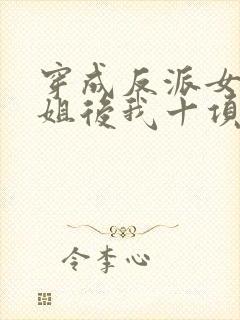 穿成反派女
姐後我十項
令李心